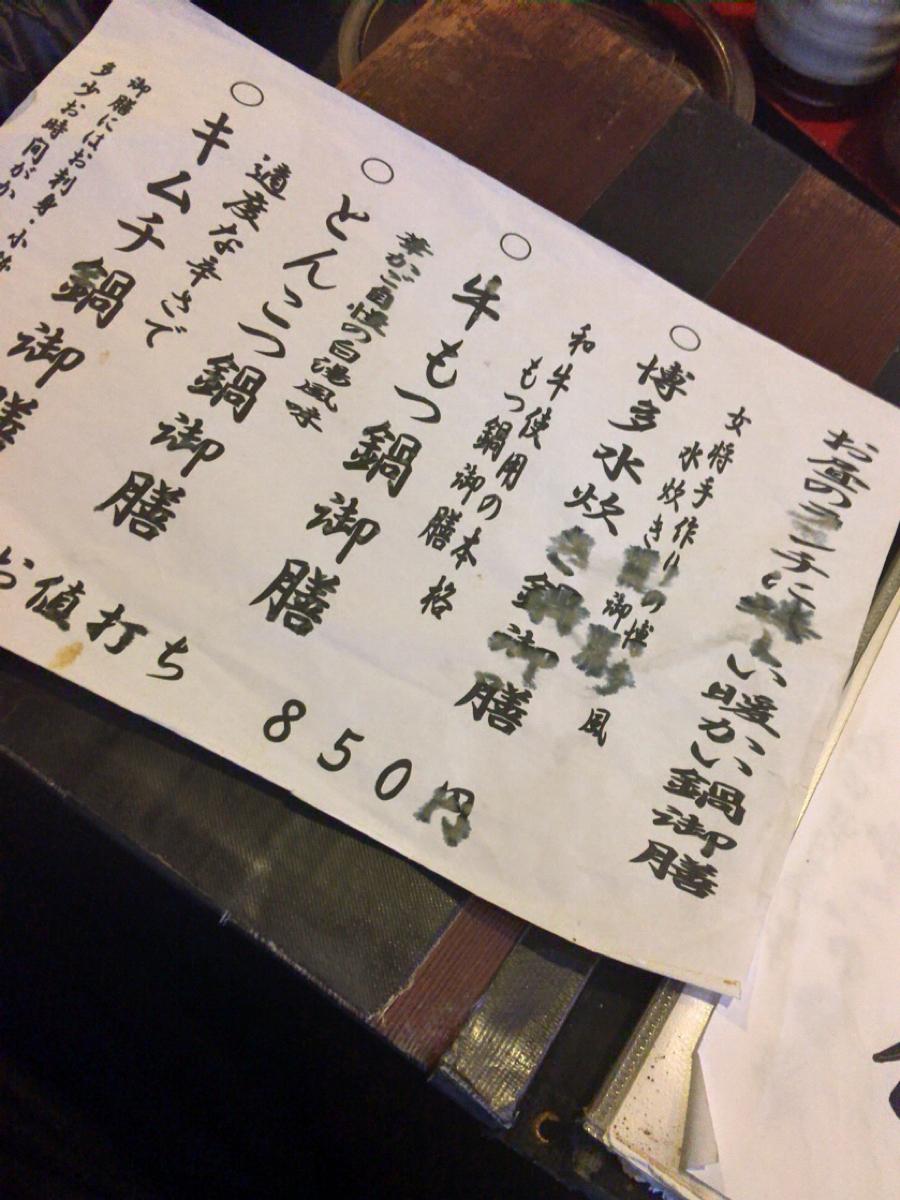 お昼のランチに嬉しい暖かい鍋御膳
女将手作りの博多風
水炊き鍋御膳
○ 博多水炊き鍋御膳
和牛使用の本格
もつ鍋御膳
○ 牛もつ鍋御膳
華かご自慢の白湯風味
○ とんこつ鍋御膳
適度な辛さで
○ キムチ鍋御膳
御膳にはお刺身・小鉢
多少お時間がか
お値打ち 850円